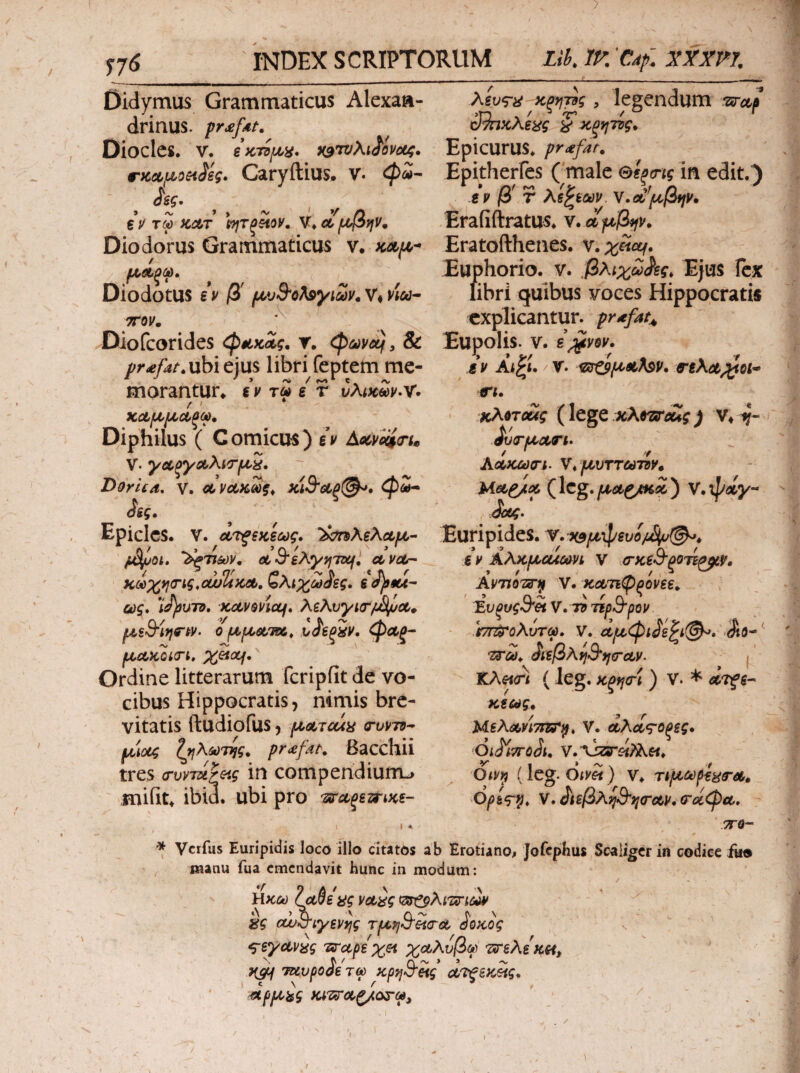 576 INDEX SCRIPTORUM Lib. IV. Cap. XXXVI.
Didymus Grammaticus Alexan-
drinus. præfat.
Diocles. v. ἐκτόμȣ. κỳτυλιδόνας.
σκαμοειδές. Caryſtius. v. φώ-
δες.
ἐν τῷ κατ' ἰητρεῖον. v. ἄμβην.
Diodorus Grammaticus v. καμ-
μάρῳ.
Diodotus ἐν β' μυθολογιῶν. v. νίω-
πον.
Dioſcorides φακὰς. v. φωναὶ, &
præfat. ubi ejus libri ſeptem me-
morantur. ἐν τῷ ε' τ ὑλικῶν. v.
καμμάρῳ.
Diphilus ( Comicus) ἐν Δαναΐσι.
v. γαργαλισμȣ.
Dorica. v. ἀνακῶς. κίθαρ@. φώ-
δες.
Epicles. v. ἀτρεκέως. ἀπολελαμ-
μένοι. ἀρτίων. ἀθελγηται. ἀνα-
κώχησις. αὐτίκα. βλιχῶδες. ἑδραί-
ως. ἵδρυτο. κανονίαι. λελυγισμένα.
μεθίησιν. ὄμματα. ὑδερȣν. φαρ-
μάκοισι. χεῖαι.
Ordine litterarum ſcripſit de vo-
cibus Hippocratis, nimis bre-
vitatis ſtudioſus, ματαίȣ συντο-
μίας ζηλωτής. præfat. Bacchii
tres συντάξεις in compendium
miſit. ibid. ubi pro παρεπικε-
λευςȣ κρητὸς, legendum παρ'
Ἐπικλέȣς τȣ κρητὸς.
Epicurus. præfat.
Epitherſes ( male Θέρσις in edit.)
ἐν β' τ λέξεων v. ἄμβην.
Eraſiſtratus. v. ἄμβην.
Eratoſthenes. v. χεῖαι.
Euphorio. v. βλιχῶδες. Ejus ſex
libri quibus voces Hippocratis
explicantur. præfat.
Eupolis. v. ἔχινον.
ἐν Αἰξί. v. προμαλον. σελαχίοι-
σι.
κλοταῖς (lege κλοπαῖς) v. ἠ-
δύσμασι.
Λάκωσι. v. μυττωτὸν.
Μαρία (leg. μαρικᾶ) v. ψαγ-
δας.
Euripides. v. κομψευόμεν@.
ἐν Ἀλκμαίωνι v σκεθρότερον.
Ἀντιόπῃ v. κατιφρόνεε.
Εὐρυσθεῖ v. τὸ τέρθρον
ἱπποlύτῳ. v. ἀμφιδέξι@. διο-
πῶ. διεβλήθησαν.
Κλεισὶ ( leg. κρησὶ ) v. * ἀτρε-
κέως.
Μελανίππῃ. v. ἀλάςορες.
Οἰδίποδι. v. ὑπείλλει.
Οἰνῇ ( leg. Οἰνεῖ ) v. τιμωρέȣσα.
Ὀρέςῃ. v. διεβλήθησαν. σάφα.
πο-
* Verſus Euripidis loco illo citatos ab Erotiano, Joſephus Scaliger in codice ſuo
manu ſua emendavit hunc in modum:
Ἥκω ζαθέȣς ναȣς προλιπιὼν
ȣς αὐθιγενὴς τμηθεῖσα δοκὸς
ςεγανȣς παρέχει χαλύβῳ πελέκει,
καὶ ταυροδέτῳ κρηθεὶς ἀτρεκεῖς.
ἁρμȣς κυπαρίσσῳ,